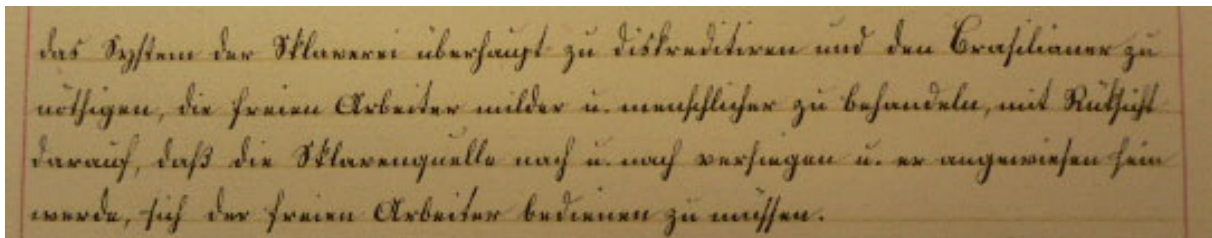 das System der Sklaverei überhaupt zu diskreditiren und den Brasilianer zu
nöthigen, die freien Arbeiter milder u. menschlicher zu behandeln, mit Rüksicht
darauf, daß die Sklavenquelle nach u. nach versiegen u. er angewiesen sein
werde, sich der freien Arbeiter bedienen zu müssen.